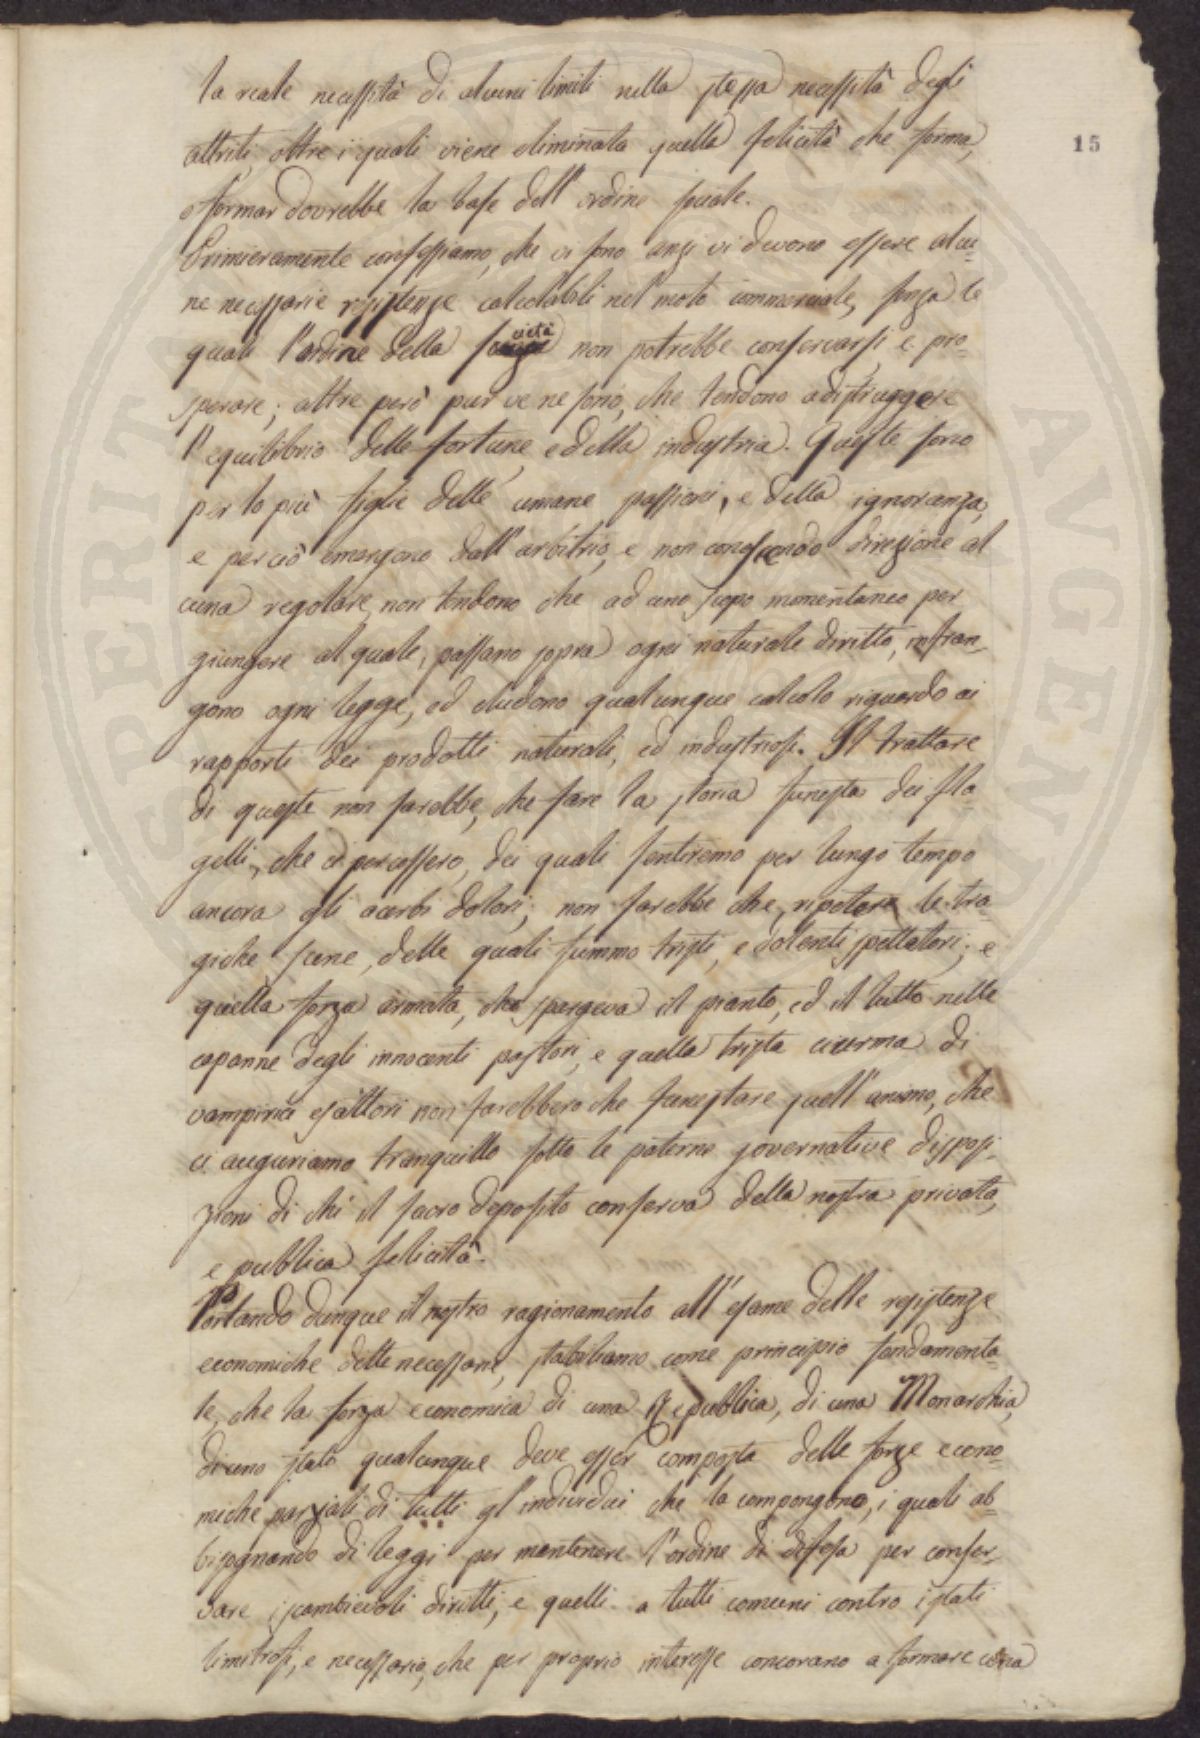 la reale necessità di alcuni limiti nella stessa necessità degli
attriti, oltre i quali viene eliminata quella felicità che forma,
o formar dovrebbe la base dell'ordine sociale.
Primieramente confessiamo, che vi sono anzi vi devono essere alcu=
ne necessarie resistenze calcolabili nel moto commerciale, senza le
quali l'ordine della società non potrebbe conservarsi e pro=
sperare; altre però pur ve ne sono, che tendono a distruggere
l'equilibrio delle fortune, e della industria. Queste sono
per lo più figlie delle umane passioni, e della ignoranza,
e perciò emergono dall'arbitrio, e non conoscendo direzione al
cuna regolare, non tendono che ad uno scopo momentaneo per
giungere al quale, passano sopra ogni naturale diritto, infran=
gono ogni legge, ed eludono qualunque calcolo riguardo ai
rapporti dei prodotti naturali, ed industriosi. Il trattare
di queste non sarebbe, che fare la storia funesta dei fla=
gelli, che ci percossero, dei quali sentiremo per lungo tempo
ancora gli acerbi dolori; non sarebbe che ripetere le tra=
giche scene, delle quali fummo tristi, e dolenti spettatori; e
quella forza armata, che spargeva il pianto, ed il lutto nelle
capanne degli innocenti pastori, e quella trista ciurma di
vampirici esattori non farebbero che funestare quell'animo, che
ci auguriamo tranquillo sotto le paterne governative disposi=
zioni di chi il sacro deposito conserva della nostra privata,
e pubblica felicità.
Portando dunque il nostro ragionamento all'esame delle resistenze
economiche dette necessarie, stabiliamo come principio fondamenta=
le, che la forza economica di una Repubblica, di una Monarchia,
di uno stato qualunque deve esser composta delle forze econo=
miche parziali di tutti gl'individui che la compongono, i quali ab=
bisognando di leggi per mantenere l'ordine di difesa per conser=
vare i scambievoli diritti, e quelli a tutti comuni contro i stati
limitrofi, e necessario, che per proprio interesse concorano a formare una
15